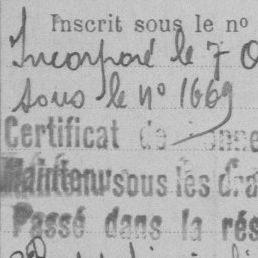 Inscrit sous le nº
Incorporé le 7 O
sous le nº 1669
Certificat de
Maintenu sous les dra
Passé dans la rés